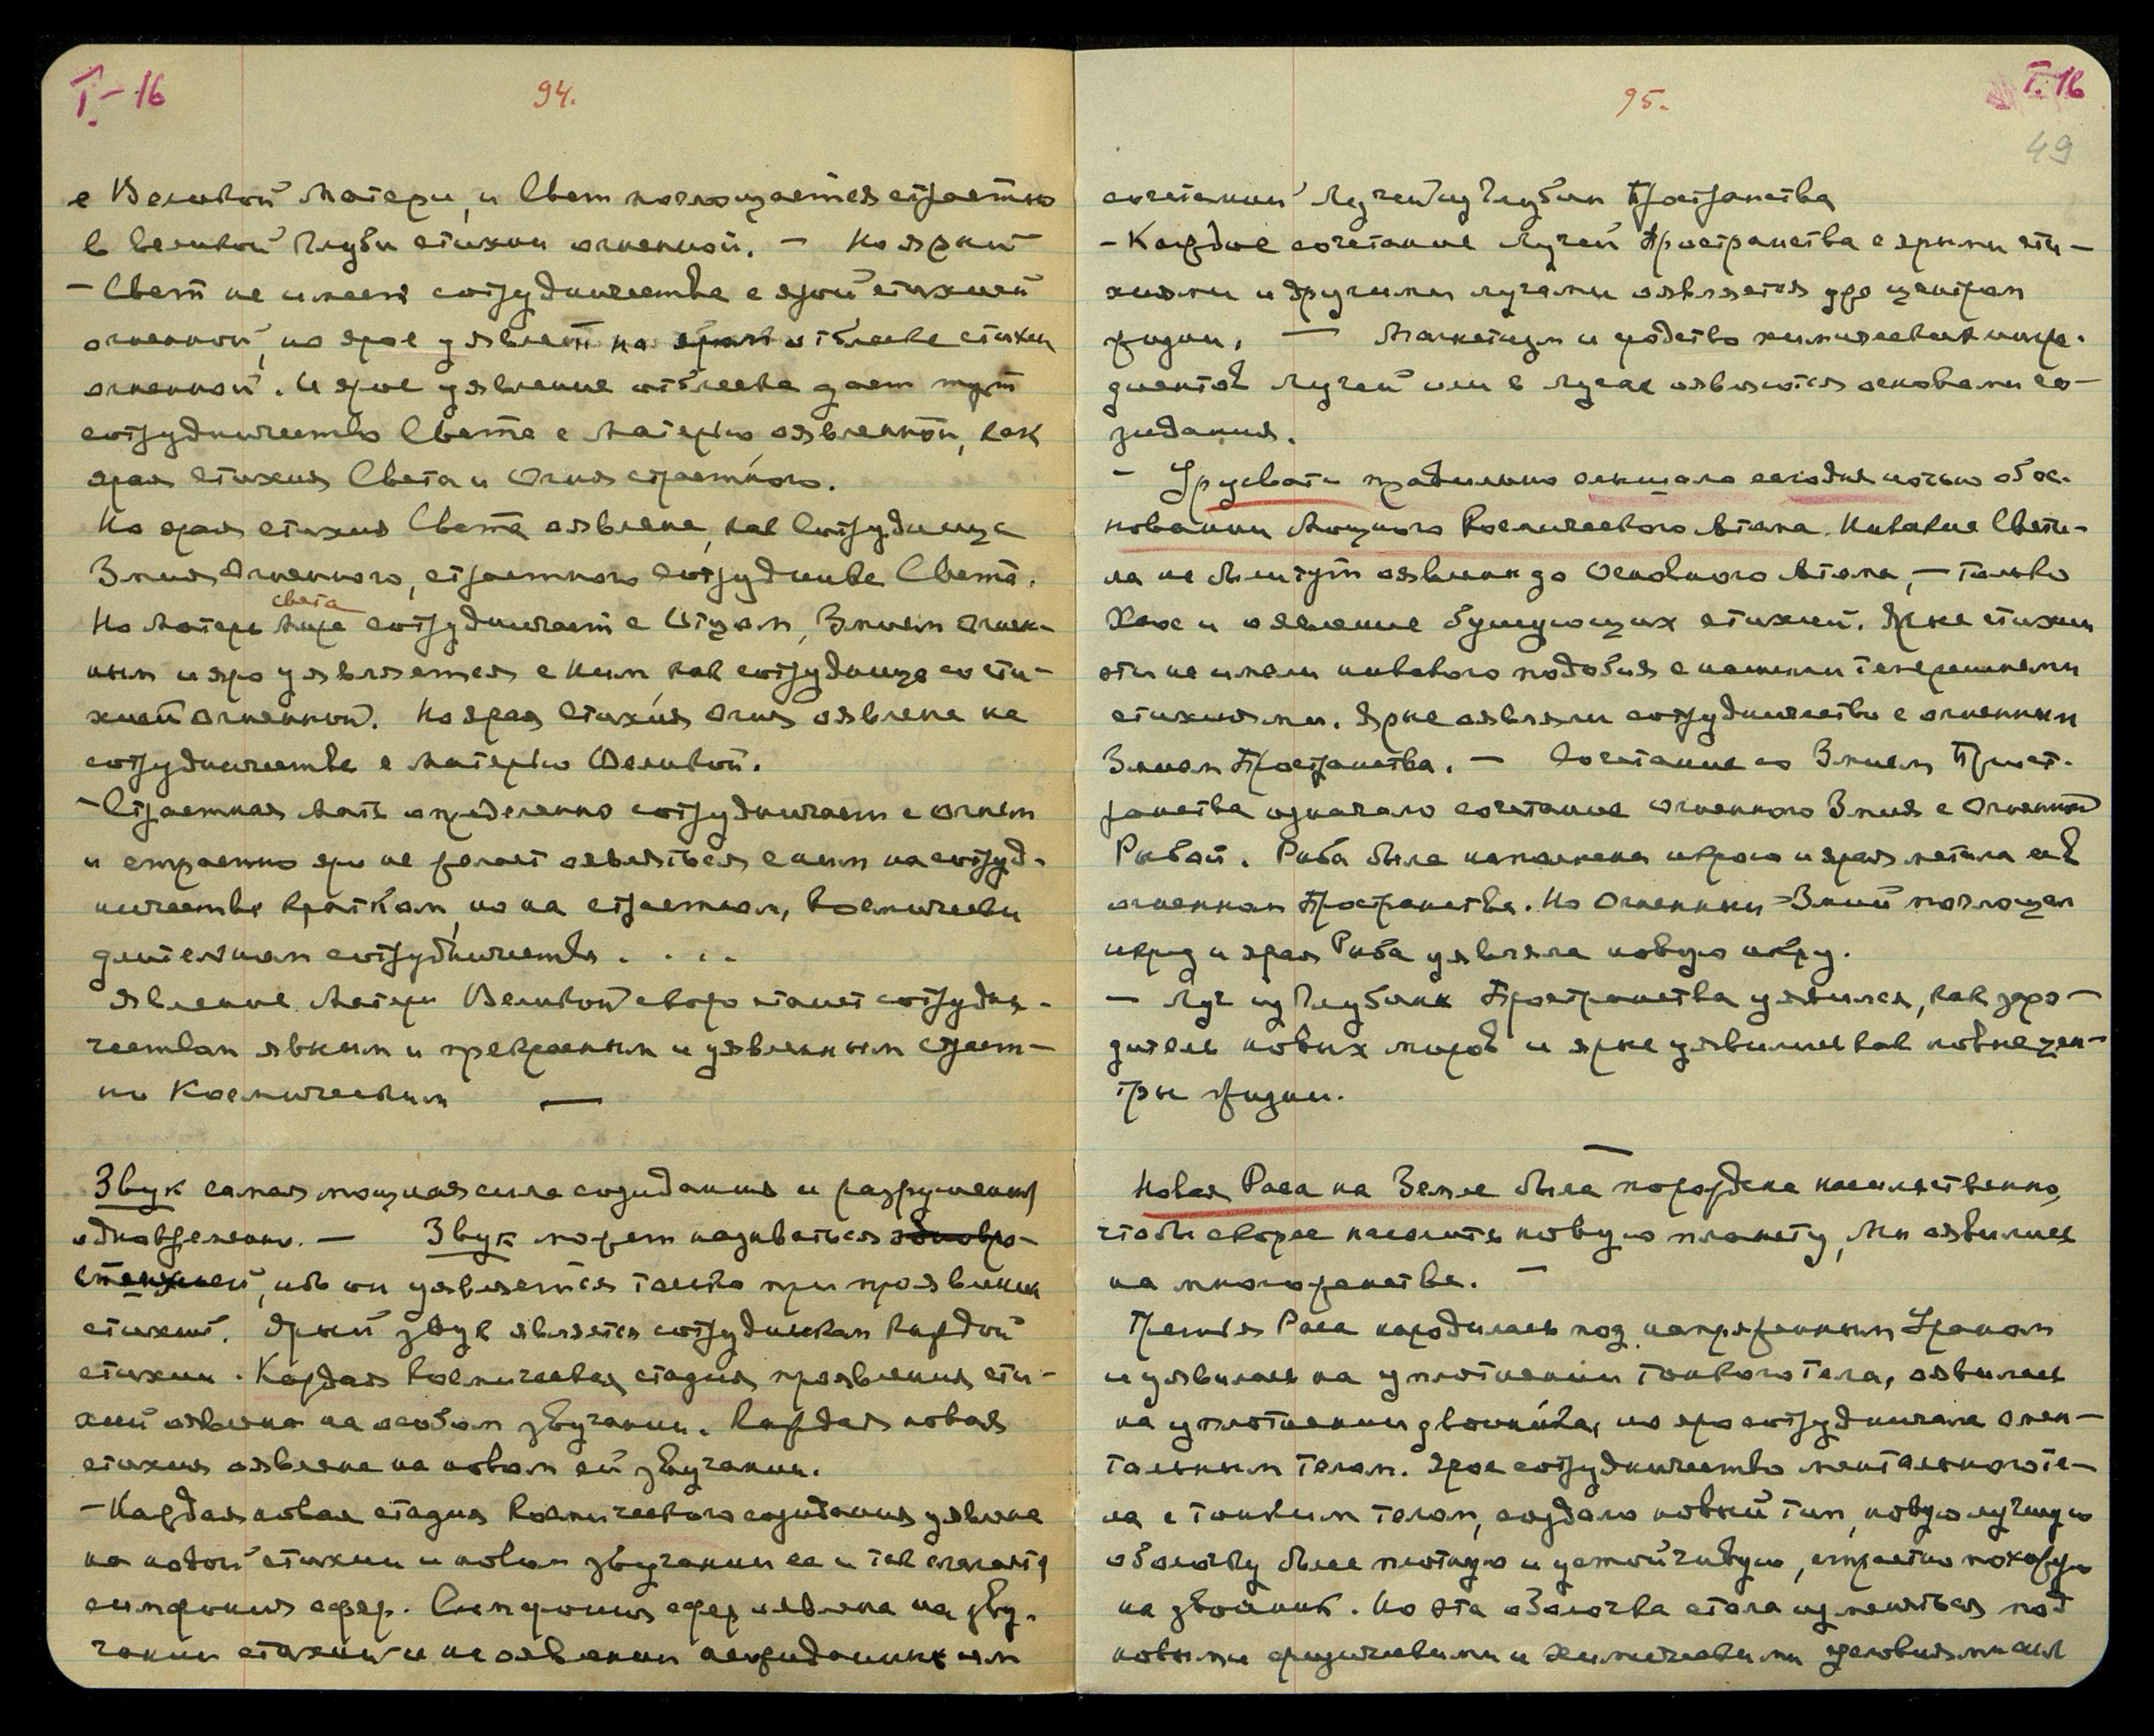 I – 16
94.
с Великой Матери, и Свет поглощается страстно
в великой Глуби стихии огненной. – Но яркий
– Свет не имеет сотрудничества с ярой стихией
огненной, но ярое уявлен на отблеске стихии
огненной. И ярое уявление отблеска дает тут
сотрудничество Света с Материю, оявленной, как
ярая стихия Света и Огня страстного.
Но ярая стихия Света оявлена, как Сотрудница
Змия Огненного, страстного Сотрудника Света.
света
Но Матерь Мира сотрудничает с Отцом, Змием Огнен-
ным и яро уявляется с ним как сотрудница со сти-
хией Огненной. Но ярая Стихия Огня оявлена на
сотрудничестве с Материю Великой.
– Страстная Мать определенно сотрудничает с Огнем
и страстно яро не желает оявляться с ним на сотруд-
ничестве кратком, но на страстном, космически
длительном сотрудничестве . . . .
Явление Матери Великой скоро станет сотрудни-
чеством явным и прекрасным и уявленным страст-
но Космическим —
Звук самая мощная сила созидания и разрушения
одновременно. – Звук может называться
стихией, ибо он уявляется только при проявлении
стихий. Ярый звук является сотрудником каждой
стихии. Каждая Космическая стадия проявления сти-
хий оявлена на особом звучании. Каждая новая
стихия оявлена на новом ей звучании.
– Каждая новая стадия Космического созидания уявлена
на новой стихии и новом звучании ее и так слагается
симфония сфер. Симфония сфер оявлена на зву-
чании стихий и на оявлении неожиданных им
95.
I. 16
49
сочетаний Лучей из Глубин Пространства
– Каждое сочетание Лучей Пространства с ярыми сти-
хиями и другими лучами оявляется уже центром
жизни, — Магнетизм и сродство химических ингре-
диентов Лучей или в лучах оявляются основами со-
зидания.
– Урусвати правильно слышала сегодня ночью об ос-
новании Мощного Космического Атома. Никакие Свети-
ла не были тут оявлены до Основного Атома, – только
Хаос и оявление бушующих стихий. Ярые стихии
эти не имели никакого подобия с нашими теперешними
стихиями. Ярые оявляли сотрудничество с огненным
Змием Пространства. – Сочетание со Змием Прост-
ранства означало сочетание Огненного Змия с Огненной
Рыбой. Рыба была наполнена икрою и ярая метала ее в
огненном Пространстве. Но Огненный Змий поглощал
икру и ярая Рыба уявляла новую икру.
— Луч из Глубины Пространства уявился, как заро-
дитель новых миров и ярые уявились как новые цен-
тры жизни.
—
Новая Раса на Земле была порождена насильственно,
чтобы скорее населить новую планету, Мы оявились
на многоженстве. –
Третья Раса народилась под напряженным Ураном
и уявилась на уплотнении тонкого тела, оявилась
на уплотнении двойника, но яро сотрудничала с мен-
тальным телом. Ярое сотрудничество ментального те-
ла с тонким телом, создало новый тип, новую лучшую
оболочку более плотную и устойчивую, страстно похожую
на двойник. Но эта оболочка стала изменяться под
новыми физическими и химическими условиями сил